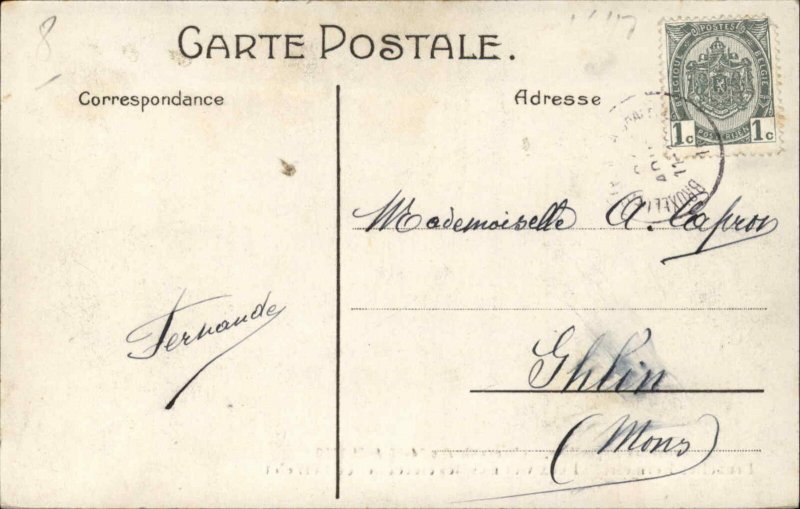 8
CARTE POSTALE.
POSTES
BELGIQUE
BELGIË
1c 1c
Correspondance
Adresse
Mademoiselle A. Capron
Fernande
Ghlin
(Mons)